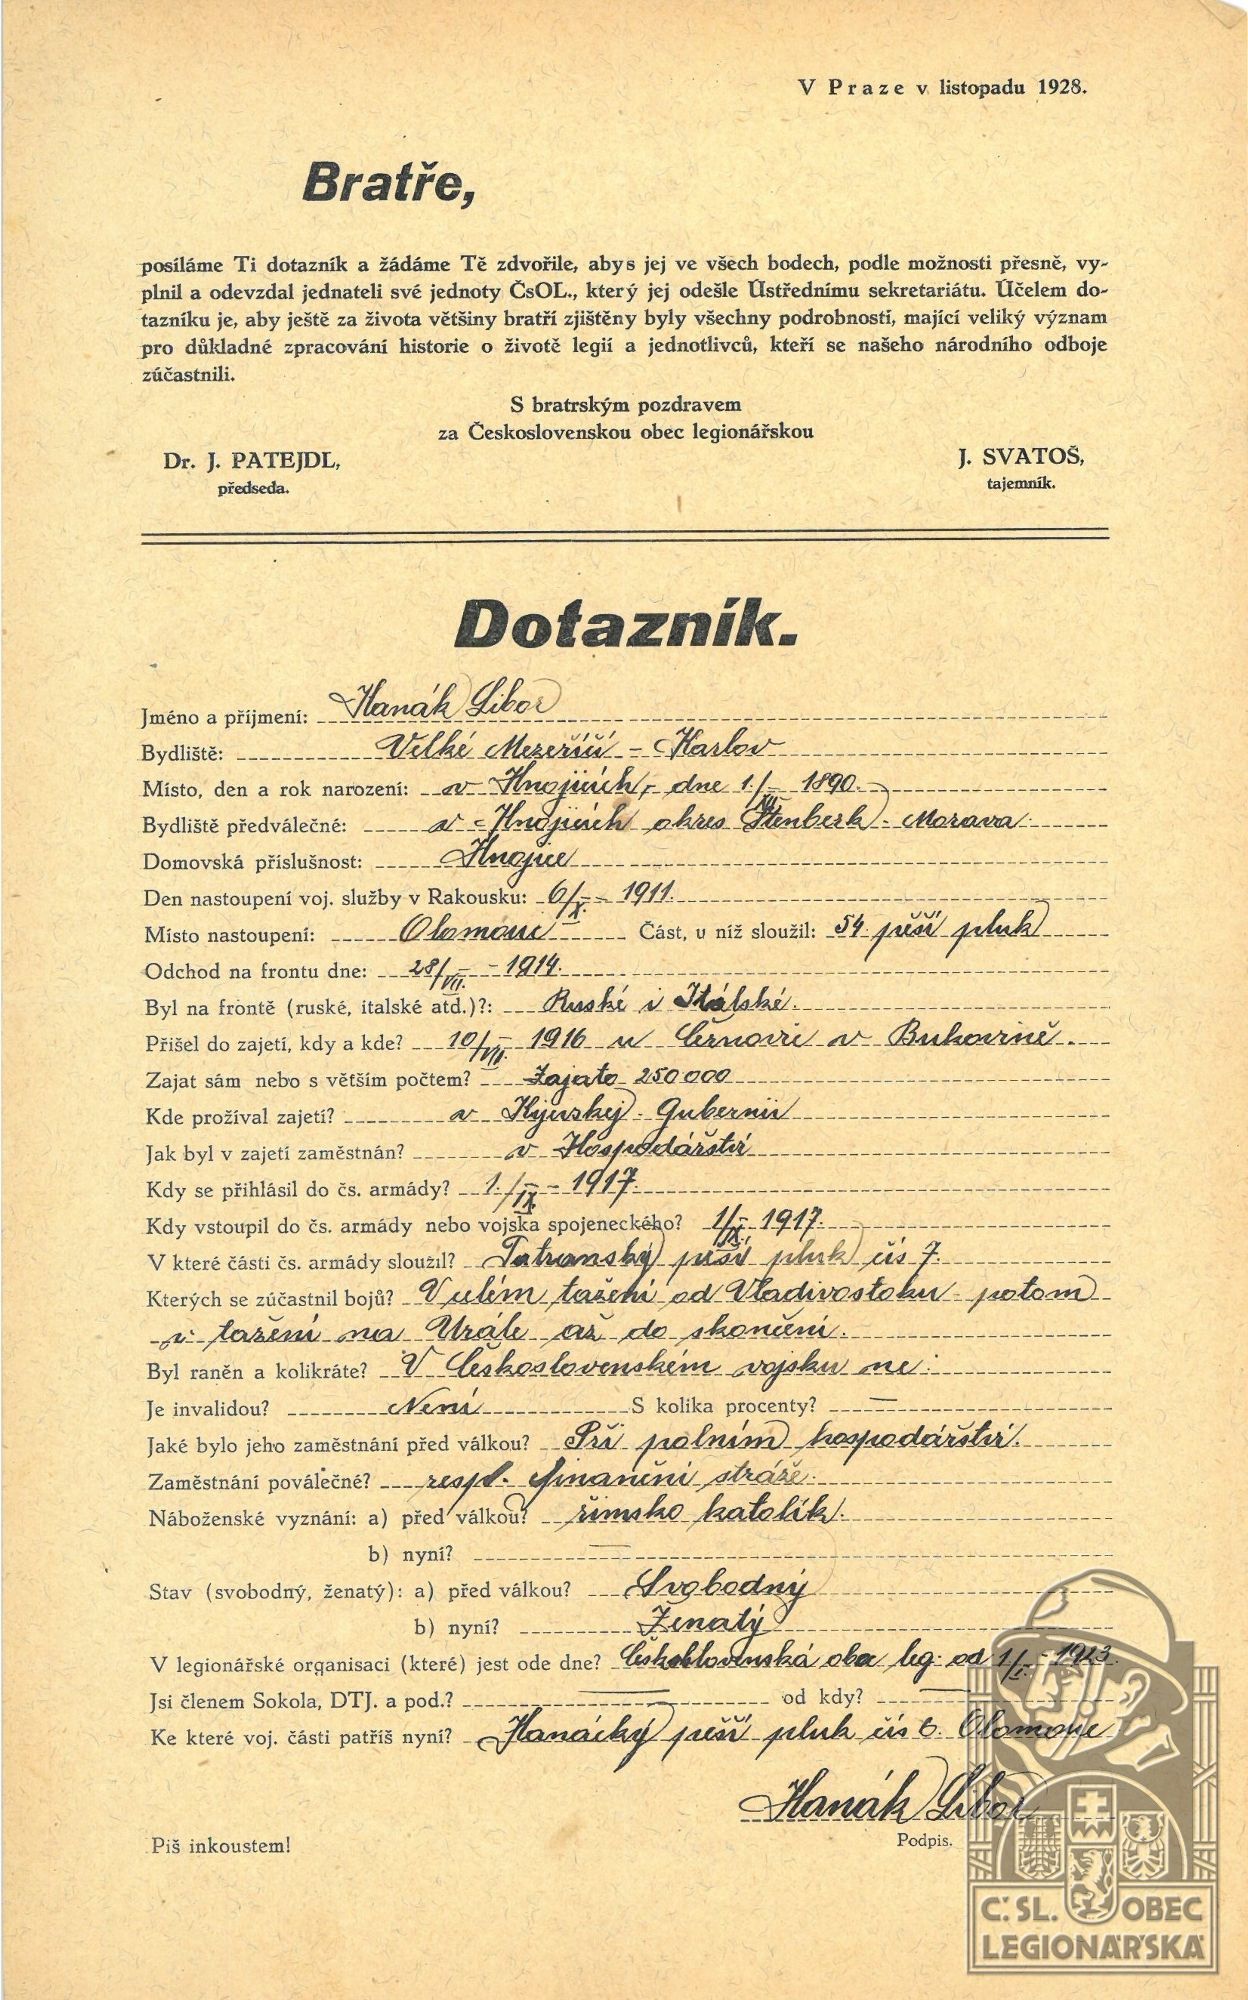 V Praze v listopadu 1928.
Bratře,
posíláme Ti dotazník a žádáme Tě zdvořile, abys jej ve všech bodech, podle možnosti přesně, vy-
plnil a odevzdal jednateli své jednoty ČsOL., který jej odešle Ústřednímu sekretariátu. Účelem do-
tazníku je, aby ještě za života většiny bratří zjištěny byly všechny podrobnosti, mající veliký význam
pro důkladné zpracování historie o životě legií a jednotlivců, kteří se našeho národního odboje
zúčastnili.
S bratrským pozdravem
za Československou obec legionářskou
Dr. J. PATEJDL,
předseda.
J. SVATOŠ,
tajemník.
Dotazník.
Jméno a příjmení: Hanák Libor
Bydliště: Velké Mezeříčí - Karlov
Místo, den a rok narození: v Hnojicích, dne 1./XII. 1890.
Bydliště předválečné: v Hnojicích okres Štenberk - Morava.
Domovská příslušnost: Hnojice
Den nastoupení voj. služby v Rakousku: 6/X. - 1911.
Místo nastoupení: Olomouc Část, u níž sloužil: 54 pěší pluk
Odchod na frontu dne: 28/VII. - 1914.
Byl na frontě (ruské, italské atd.)?: Ruské i Itálské.
Přišel do zajetí, kdy a kde? 10/VII. 1916 u Černovic v Bukovině.
Zajat sám nebo s větším počtem? Zajato 250000
Kde prožíval zajetí? v Kyjevskej Gubernii
Jak byl v zajetí zaměstnán? v Hospodářství
Kdy se přihlásil do čs. armády? 1./IX - 1917.
Kdy vstoupil do čs. armády nebo vojska spojeneckého? 1/IX. 1917.
V které části čs. armády sloužil? Tatranský pěší pluk čís 7.
Kterých se zúčastnil bojů? V celém tažení od Vladivostoku potom
v tažení na Urále až do skončení.
Byl raněn a kolikráte? V Československém vojsku ne.
Je invalidou? Není S kolika procenty? —
Jaké bylo jeho zaměstnání před válkou? Při polním hospodářství.
Zaměstnání poválečné? resp. finanční stráže.
Náboženské vyznání: a) před válkou? římsko katolík.
b) nyní? —
Stav (svobodný, ženatý): a) před válkou? Svobodný
b) nyní? Ženatý
V legionářské organisaci (které) jest ode dne? Československá obec leg. od 1/I. - 1923.
Jsi členem Sokola, DTJ. a pod.? — od kdy? —
Ke které voj. části patříš nyní? Hanácký pěší pluk čís 6. Olomouc
Hanák Libor
Podpis.
Piš inkoustem!
Č.SL. OBEC
LEGIONÁŘSKÁ